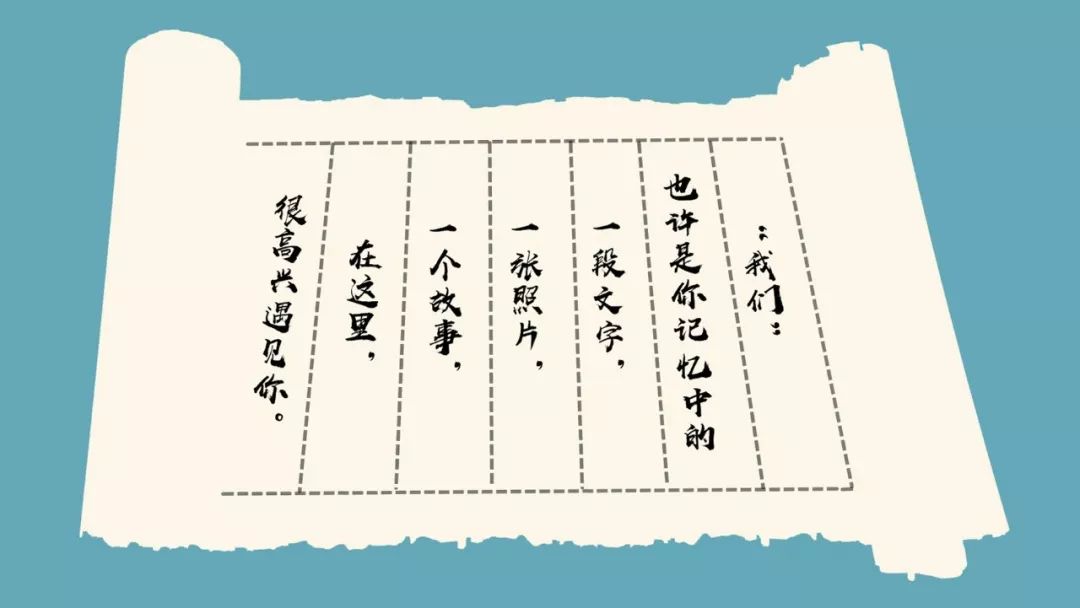 ：我们：
也许是你记忆中的
一段文字，
一张照片，
一个故事，
在这里，
很高兴遇见你。